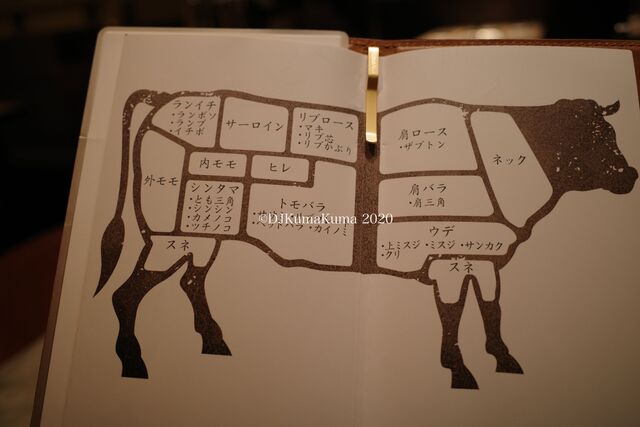 ランイチ
・ランボソ
・ランプ
・イチボ
サーロイン
リブロース
・マキ
・リブ芯
・リブかぶり
肩ロース
・ザブトン
ネック
外モモ
内モモ
ヒレ
シンタマ
・とも三角
・シンシン
・カメノコ
・ツチノコ
トモバラ
・カイノミ
肩バラ
・肩三角
ウデ
・上ミスジ ・ミスジ ・サンカク
・クリ
スネ
スネ
©DJKumaKuma 2020